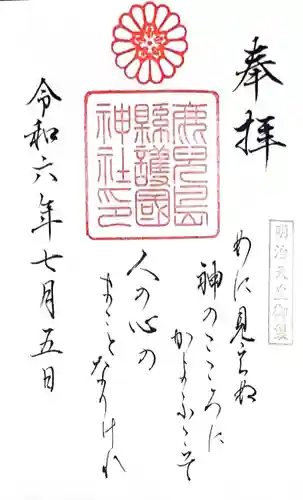 奉拝
明治天皇御製
めに見えぬ
神のこころに
かよふこそ
人の心の
まことなりけれ
鹿児島
縣護國
神社印
令和六年七月五日